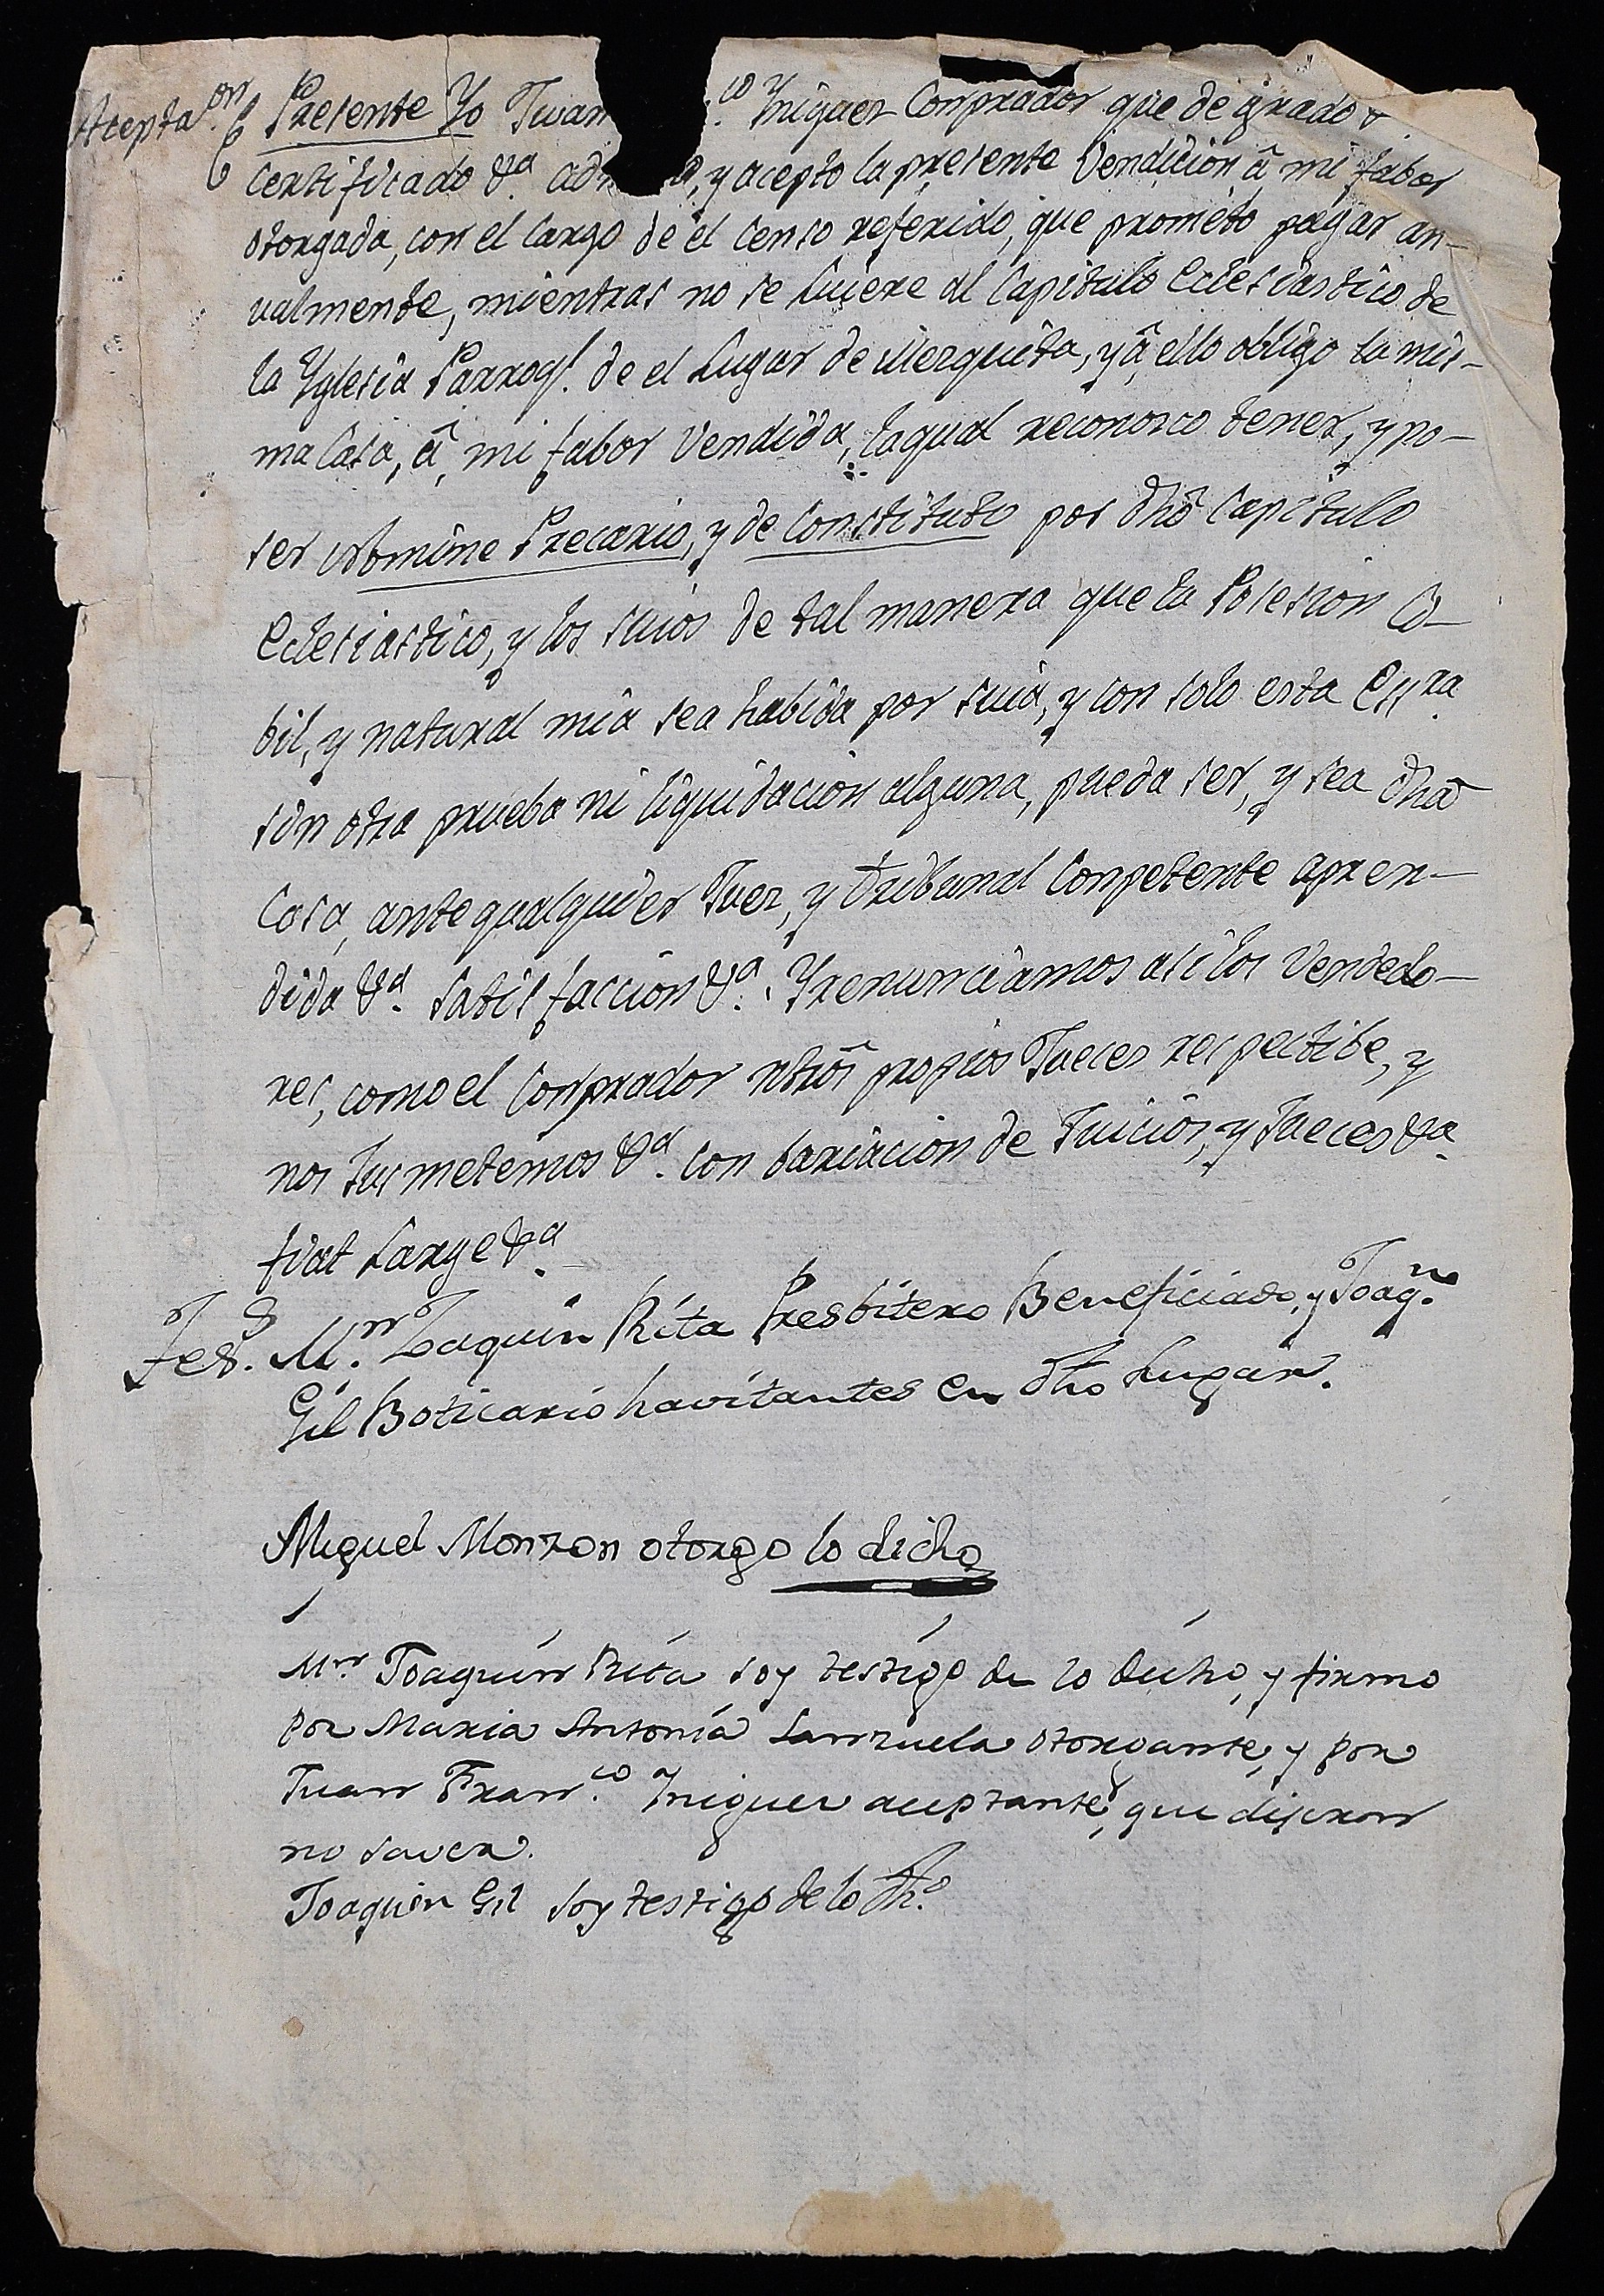 Acepta.on Presente Yo Juan .co Yñiguez Conprador que de grado &
certificado &a. y acepto la presente Vendicion â mi fabor
otorgada, con el cargo de el censo referido, que prometo pagar an-
ualmente, mientras no se luiere al Capitulo Eclesiastico de
la Yglesia Parroql. de el Lugar de Mezquita, y â ello obligo la mis-
ma Casa, â mi fabor Vendida, la qual reconosco tener, y po-
ser Nomine Precario, y de Constituto por dhô Capitulo
Eclesiastico, y los suios de tal manera que la Posesion Ci-
bil, y natural mia sea habida por suia, y con solo esta Essra.
sin otra prueba ni liquidacion alguna, pueda ser, y sea dhâ
Casa, ante qualquier Juez, y tribunal Conpetente apren-
dida &a. satisfaccion &a. Y renunciamos asi los Vendedo-
res, como el Conprador ntrôs propios Jueces respectibe, y
nos susmetemos &a. con bariacion de Juicios, y Jueces &a.
fiat Large &a.
Tes. Mn. Joaquin Rita Presbitero Beneficiado, y Joaqn.
Gil Boticario havitantes en dho Lugar.
Miguel Monzon otorgo lo dicho
Mn. Joaquin Rita soy testigo de lo dicho, y firmo
por Maria Antonia Sanzuela otorgante, y por
Juan Fran.co Yñiguez aceptante, que dijeron
no saver.
Joaquin Gil soy testigo de lo dho.